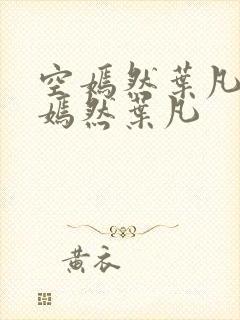 空嫣然葉凡
嫣然葉凡
黃衣